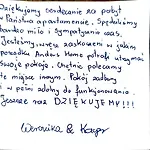 Dziękujemy serdecznie za pobyt
w Państwa apartamencie. Spędziliśmy
bardzo miło i sympatycznie czas.
Jesteśmy zaskoczeni w jakim
porządku Anders Home potrafi utrzymać
swoje pokoje. Chętnie polecamy
te miejsce innym. Pokój zadbany
i w pełni zdolny do funkcjonowania.
Jeszcze raz DZIĘKUJEMY!!!
Weronika & Kacper